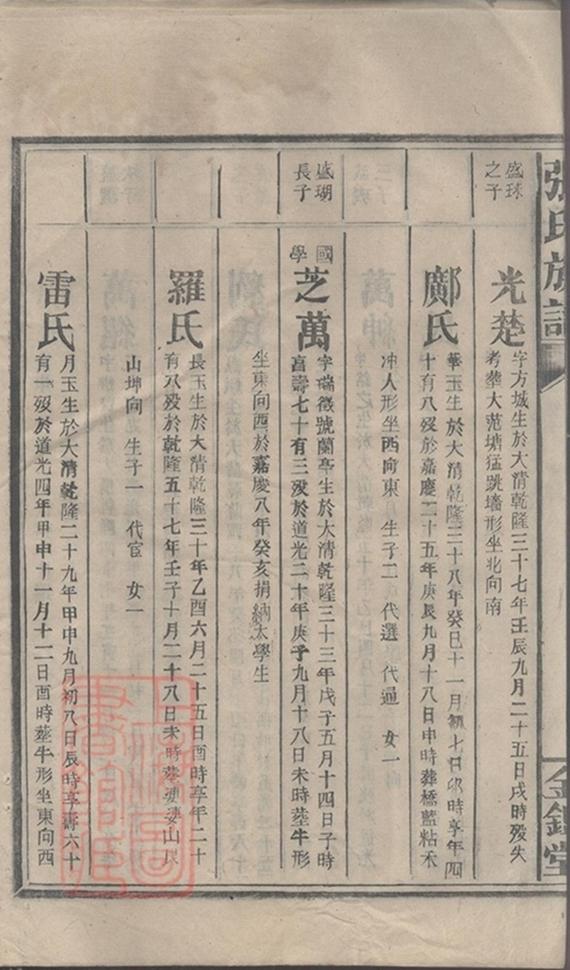 張氏族譜
金鑑堂
盛球
之子
光楚
字方城生於大清乾隆三十七年壬辰九月二十五日戌時歿失
考葬大范塘猛跳墻形坐北向南
鄺氏
華玉生於大清乾隆三十八年癸巳十一月初七日卯時享年四
十有八歿於嘉慶二十五年庚辰九月十八日申時葬橋藍粘禾
冲人形坐西向東 生子二 代選 代通 女一
盛瑚
長子
國
學
芝萬
字瑞徵號蘭亭生於大清乾隆三十三年戊子五月十四日子時
享壽七十有三歿於道光二十年庚子九月十八日未時塟牛形
坐東向西於嘉慶八年癸亥捐納太學生
羅氏
長玉生於大清乾隆三十年乙酉六月二十五日酉時享年二十
有八歿於乾隆五十七年壬子十月二十八日未時葬婆婆山艮
山坤向 生子一 代宦 女一
雷氏
月玉生於大清乾隆二十九年甲申九月初八日辰時享壽六十
有一歿於道光四年甲申十一月十二日酉時塟牛形坐東向西